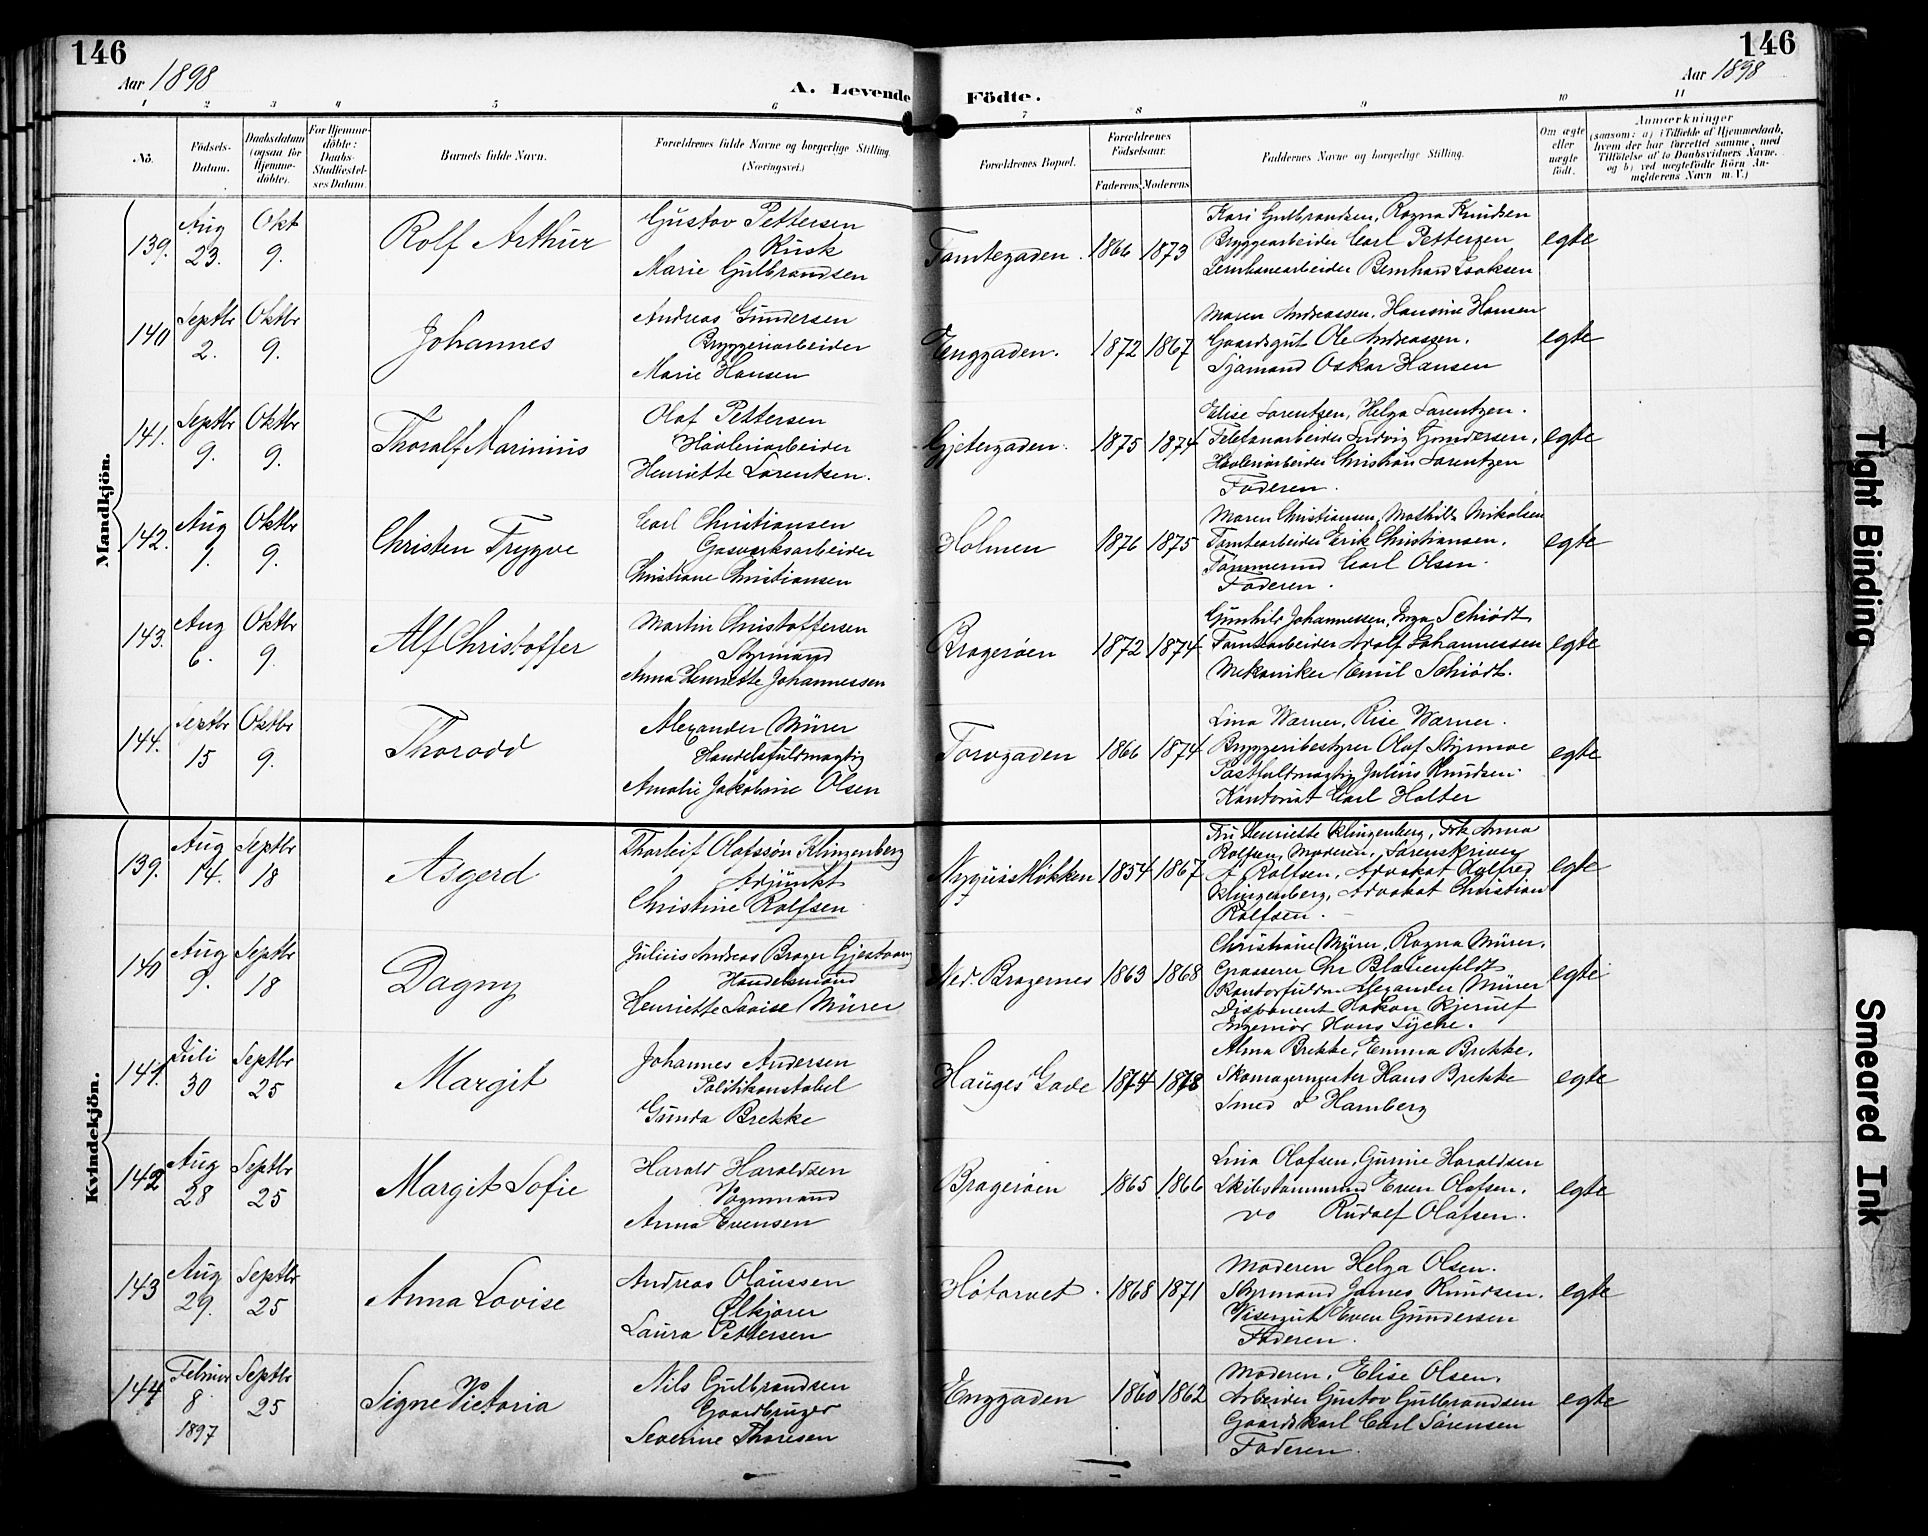 146
Aar 1898
A. Levende
1 2 3 4 5 6
No.
Födsels-
Datum.
Daabsdatum
(ogsaa for
Hjemme-
döbte).
For Hjemme-
döbte:
Daabs-
Stadfæstel-
ses Datum.
Barnets fulde Navn.
Forældrenes fulde Navne og borgerlige Stilling.
(Næringsvei.)
Mandkjön.
139. Aug 23. Okt 9. Rolf Arthur
Gustav Pettersen
Kusk
Marie Gulbrandsen
140 Septbr 2. Oktbr 9. Johannes
Andreas Gundersen
Bryggeriarbeider
Marie Hansen
141. Septbr 9. Oktbr 9. Thoralf Marinius
Olaf Pettersen
Høvleriarbeider
Henriette Lorentsen.
142. Aug 1. Oktbr 9. Christen Trygve
Carl Christiansen
Gasverksarbeider
Christiane Christiansen
143. Aug 6. Oktbr 9. Alf Christoffer
Martin Christoffersen
Styrmand
Anna Henriette Johannessen
144. Septbr 15 Oktbr 9. Thorodd
Alexander Mürer
Handelsfuldmægtig
Amalie Jakobine Olsen
Kvindekjön.
139. Aug 14. Septbr 18 Asgerd
Thorleif Olafssøn Klingenberg
Adjunkt
Christine Rolfsen
140 Aug 9. Septbr 18 Dagny
Julius Andreas Brager Gjestvang
Handelsmand
Henriette Lovise Mürer
141. Juli 30 Septbr 25 Margit
Johannes Andersen
Politikonstabel
Gunda Brekke
142 Aug 28 Septbr 25 Margit Sofie
Harald Haraldsen
Vognmand
Anna Evensen
143 Aug 29. Septbr 25 Anna Lovise
Andreas Olaussen
Ølkjører
Laura Pettersen
144 Februar 8 1897 Septbr 25 Signe Victoria
Nils Gulbrandsen
Gaardbruger
Severine Thoresen
146
Aar 1898
Födte.
7 8 9 10 11
Forældrenes Bopæl.
Forældrenes
Födselsaar.
Faderens. Moderens.
Faddernes Navne og borgerlige Stilling.
Om ægte
eller
uægte
födt.
Anmærkninger
(saasom: a) i Tilfælde af Hjemmedaab,
hvem der har forrettet samme, med
Tilföielse af to Daabsvidners Navne.
og b) ved uægtefödte Börn An-
melderens Navn m. V.)
Tomtegaden. 1866 1873
Kari Gulbrandsen, Ragna Knudsen
Bryggearbeider Carl Pettersen
Jernbanearbeider Bernhard Isaksen
egte
Enggaden. 1872 1867
Maren Andreassen, Hansine Hansen
Gaardsgut Ole Andreassen.
Sjømand Oskar Hansen
egte
Gjetergaden. 1875 1874
Elise Lorentzen, Helga Lorentzen.
Telefonarbeider Ludvig Gundersen,
Høvleriarbeider Christian Lorentzen
Faderen.
egte
Holmen 1876 1875
Maren Christiansen, Mathilde Nikolsen
Tomtearbeider Erik Christiansen.
Tømmermd Carl Olsen.
Faderen.
egte
Bragerøen 1872 1874
Gunhild Johannessen, Inga Schiødt
Tomtearbeider Adolf Johannessen
Mekaniker Emil Schiødt.
egte
Torvgaden 1866 1874
Lina Warner, Rise Warner.
Bryggeribestyrer Olaf Styrmoe
Postfuldmægtig Julius Knudsen.
Kontorist Carl Holter
egte
Nyquistløkken 1854 1867
Fru Henriette Klingenberg, Frk Anna
Rolfsen, Moderen, Sorenskriver
A Rolfsen, Advokat Kalfred
Klingenberg, Advokat Christian
Rolfsen.
egte
Ned. Bragernes 1863 1868
Christiane Mürer, Ragna Mürer.
Grosserer Chr Blauenfeldt
Kontorfuldm Alexander Mürer
Disponent Håkon Kjerulf
Ingeniør Hans Lyche.
egte
Hauges Gade 1874 1878
Alma Brekke, Emma Brekke.
Skomagermester Hans Brekke
Smed J Hamberg
egte
Bragerøen 1865 1866
Lina Olafsen, Gurine Haraldsen
Skibstømmermd Even Olafsen.
do Rudolf Olafsen.
egte
Høtorvet. 1868 1871
Moderen Helga Olsen.
Styrmand James Knudsen.
Visergut Even Gundersen
Faderen.
egte
Enggaden 1860 1862
Moderen, Elise Olsen,
Arbeider Gustav Gulbrandsen
Gaardskarl Carl Sørensen
Faderen.
egte
Tight Binding
Smeared Ink